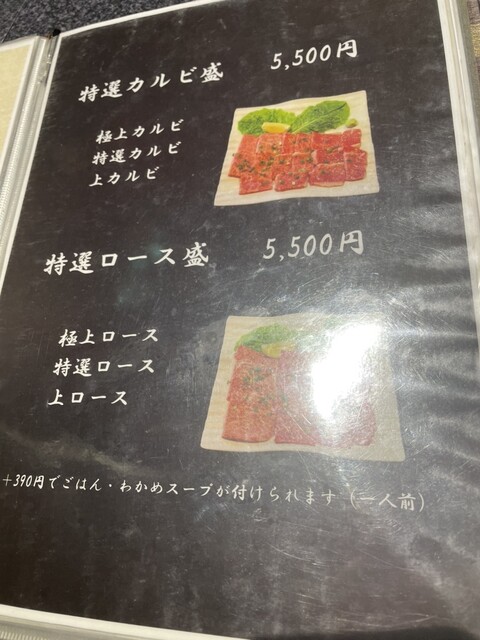 特選カルビ盛 5,500円
極上カルビ
特選カルビ
上カルビ
特選ロース盛 5,500円
極上ロース
特選ロース
上ロース
+390円でごはん・わかめスープが付けられます(一人前)